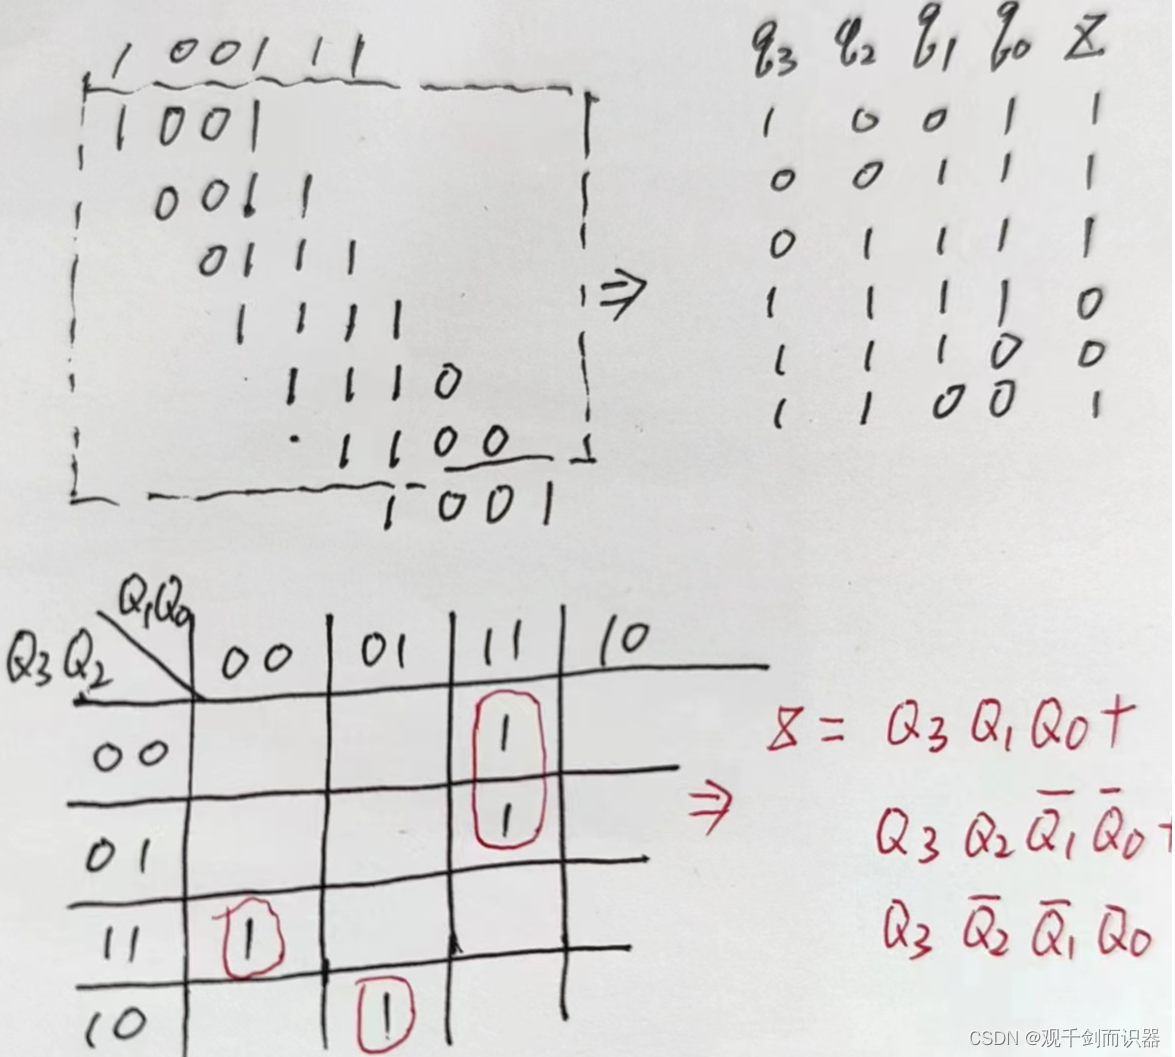 1 0 0 1 1 1
1 0 0 1
0 0 1 1
0 1 1 1
1 1 1 1
1 1 1 0
1 1 0 0
1 0 0 1
⇒
q₃ q₂ q₁ q₀ Z
1 0 0 1 1
0 0 1 1 1
0 1 1 1 1
1 1 1 1 0
1 1 1 0 0
1 1 0 0 1
Q₁Q₀
Q₃Q₂ 00 01 11 10
00 1
01 1
11 1
10 1
⇒
Z = Q₃ Q₁ Q₀ +
Q₃ Q₂ Q̅₁ Q̅₀ +
Q₃ Q̅₂ Q̅₁ Q₀
CSDN @观千剑而识器